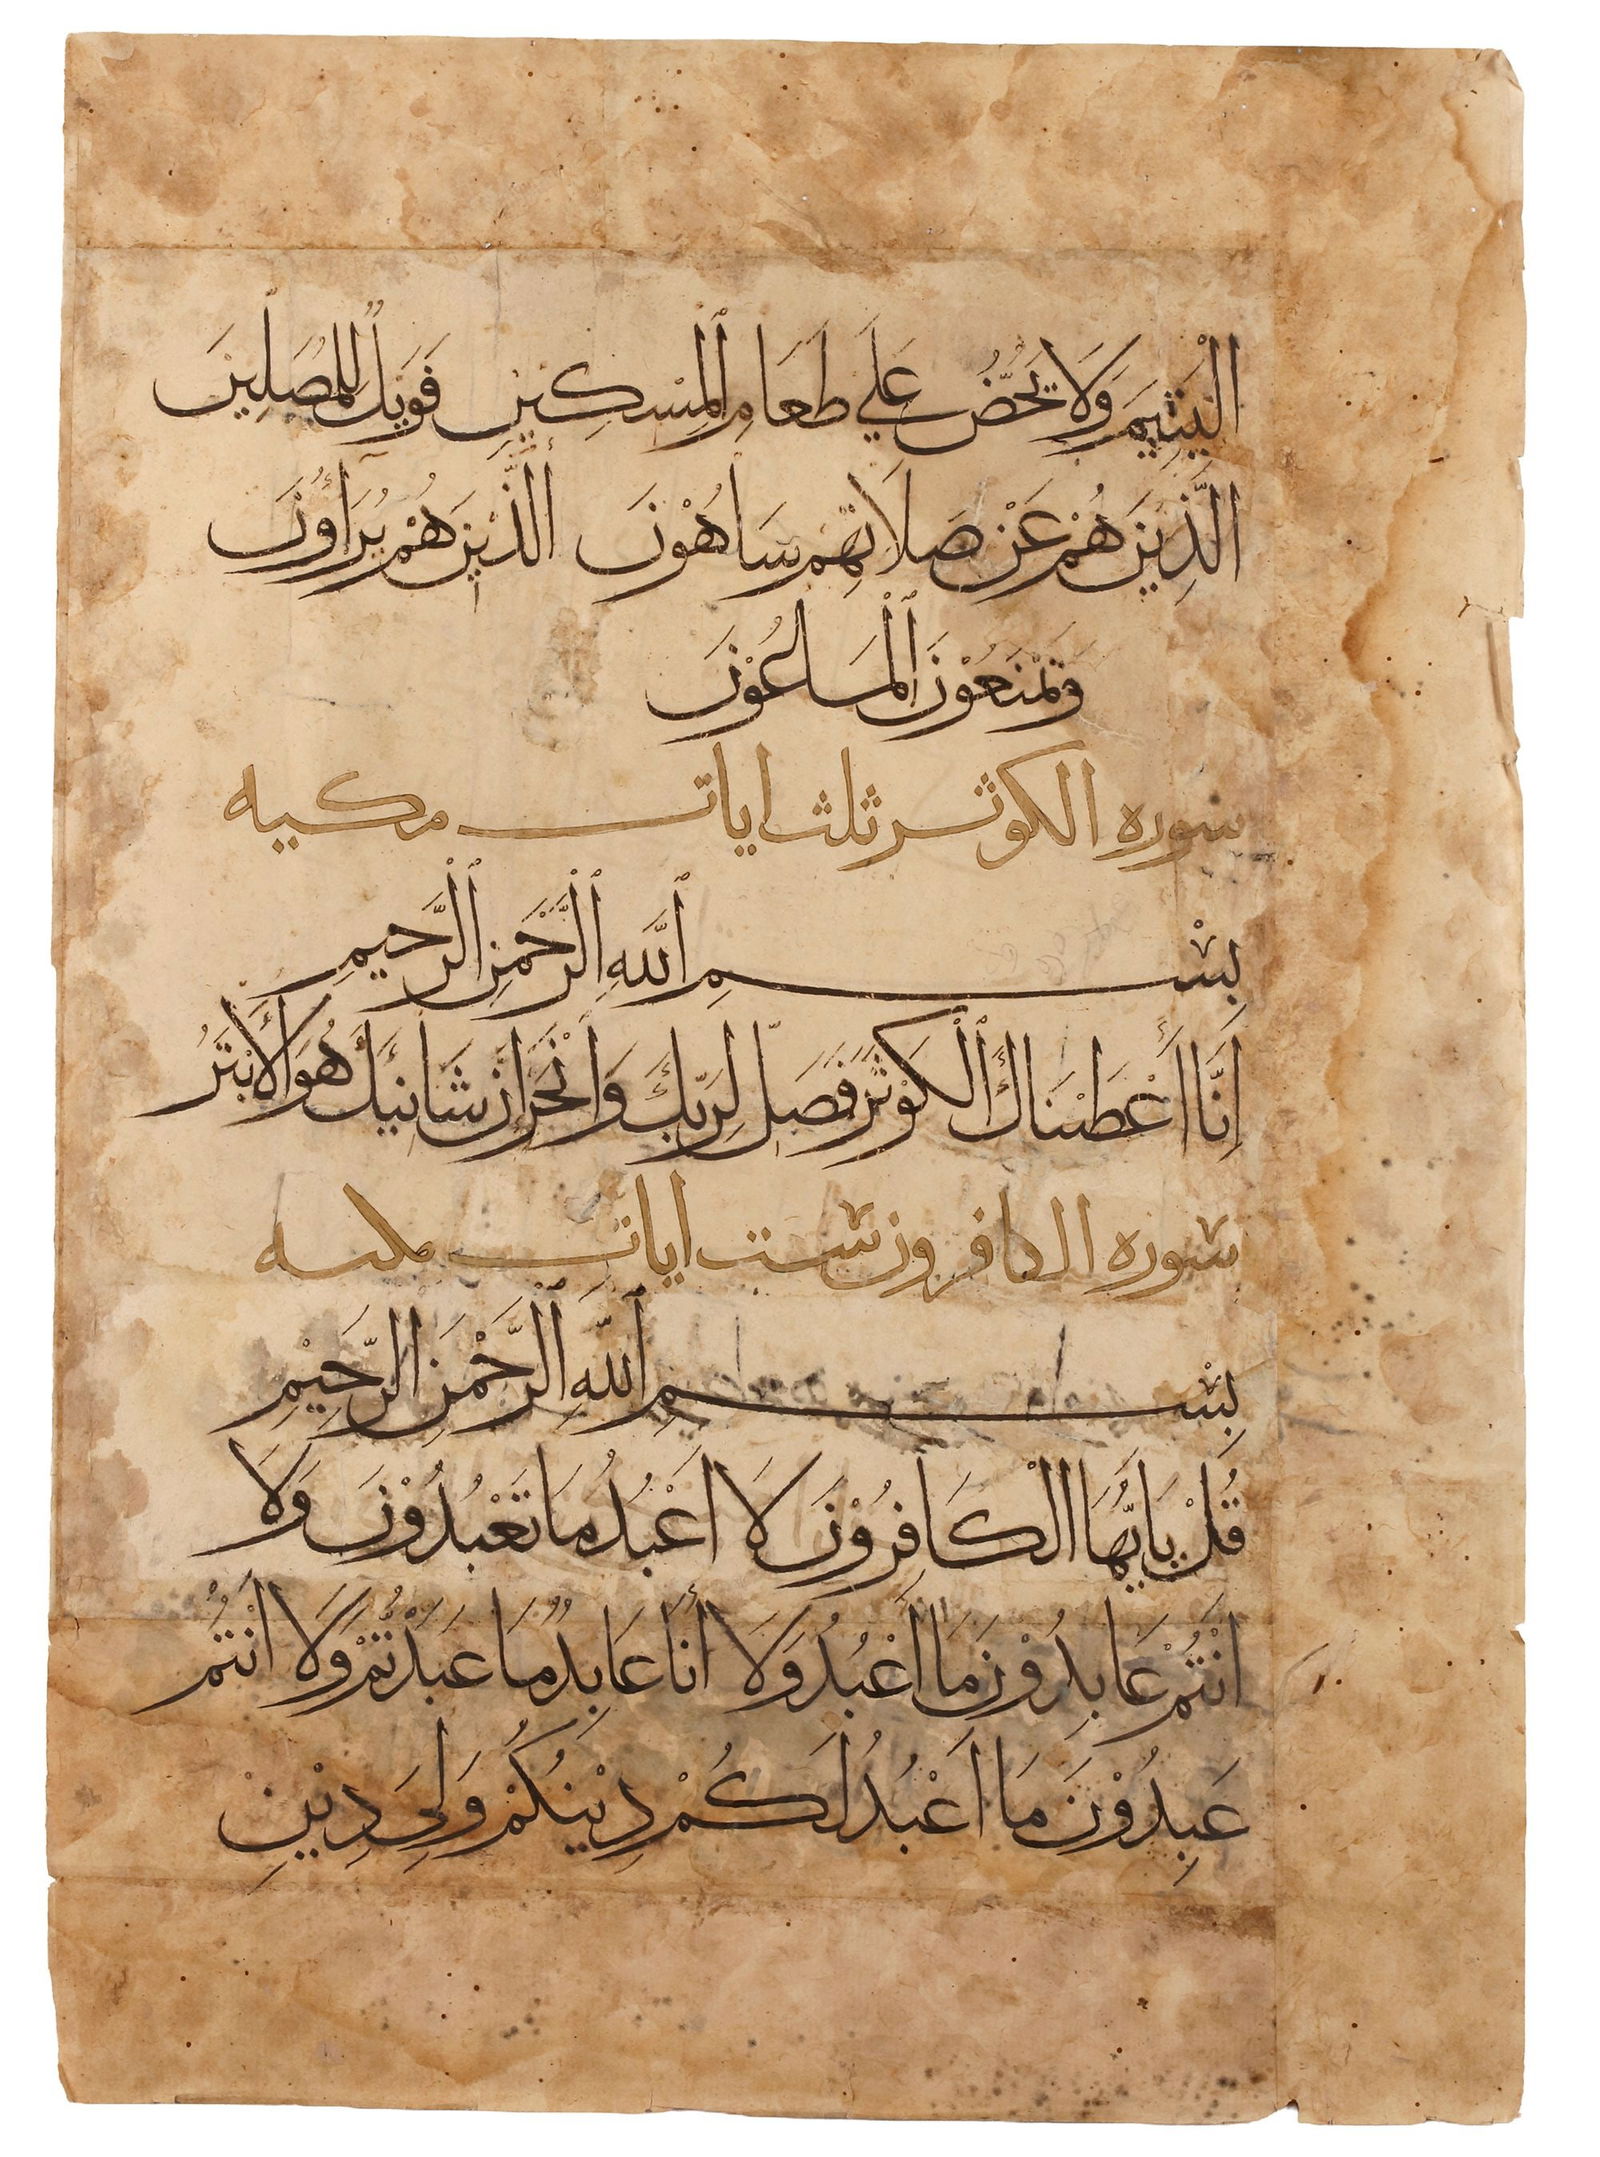 الْيَتِيمَ وَلَا يَحُضُّ عَلَى طَعَامِ ٱلْمِسْكِينِ فَوَيْلٌ لِّلْمُصَلِّينَ
الَّذِينَ هُمْ عَنْ صَلَاتِهِمْ سَاهُوْنَ الَّذِيْنَ هُمْ يُرَآؤُنَ
وَيَمْنَعُوْنَ ٱلْمَاعُوْنَ
سوره الكوثر ثلث ايات مكيه
بِسْمِ ٱللَّهِ ٱلرَّحْمَنِ ٱلرَّحِيمِ
اِنَّا أَعْطَيْنَاكَ ٱلْكَوْثَرَ فَصَلِّ لِرَبِّكَ وَانْحَرْ اِنَّ شَانِئَكَ هُوَ الْأَبْتَرُ
سوره الكافرون ست ايات مكيه
بِسْمِ ٱللَّهِ ٱلرَّحْمَنِ الرَّحِيْمِ
قُلْ يَا يُّهَا الْكَافِرُوْنَ لَا اَعْبُدُ مَا تَعْبُدُوْنَ وَلَا
اَنْتُمْ عَابِدُوْنَ مَا أَعْبُدُ وَلَا أَنَا عَابِدٌ مَا عَبَدْتُّمْ وَلَا اَنْتُمْ
عَبِدُوْنَ مَا اَعْبُدُ لَكُمْ دِيْنُكُمْ وَلِيَ دِيْنِ